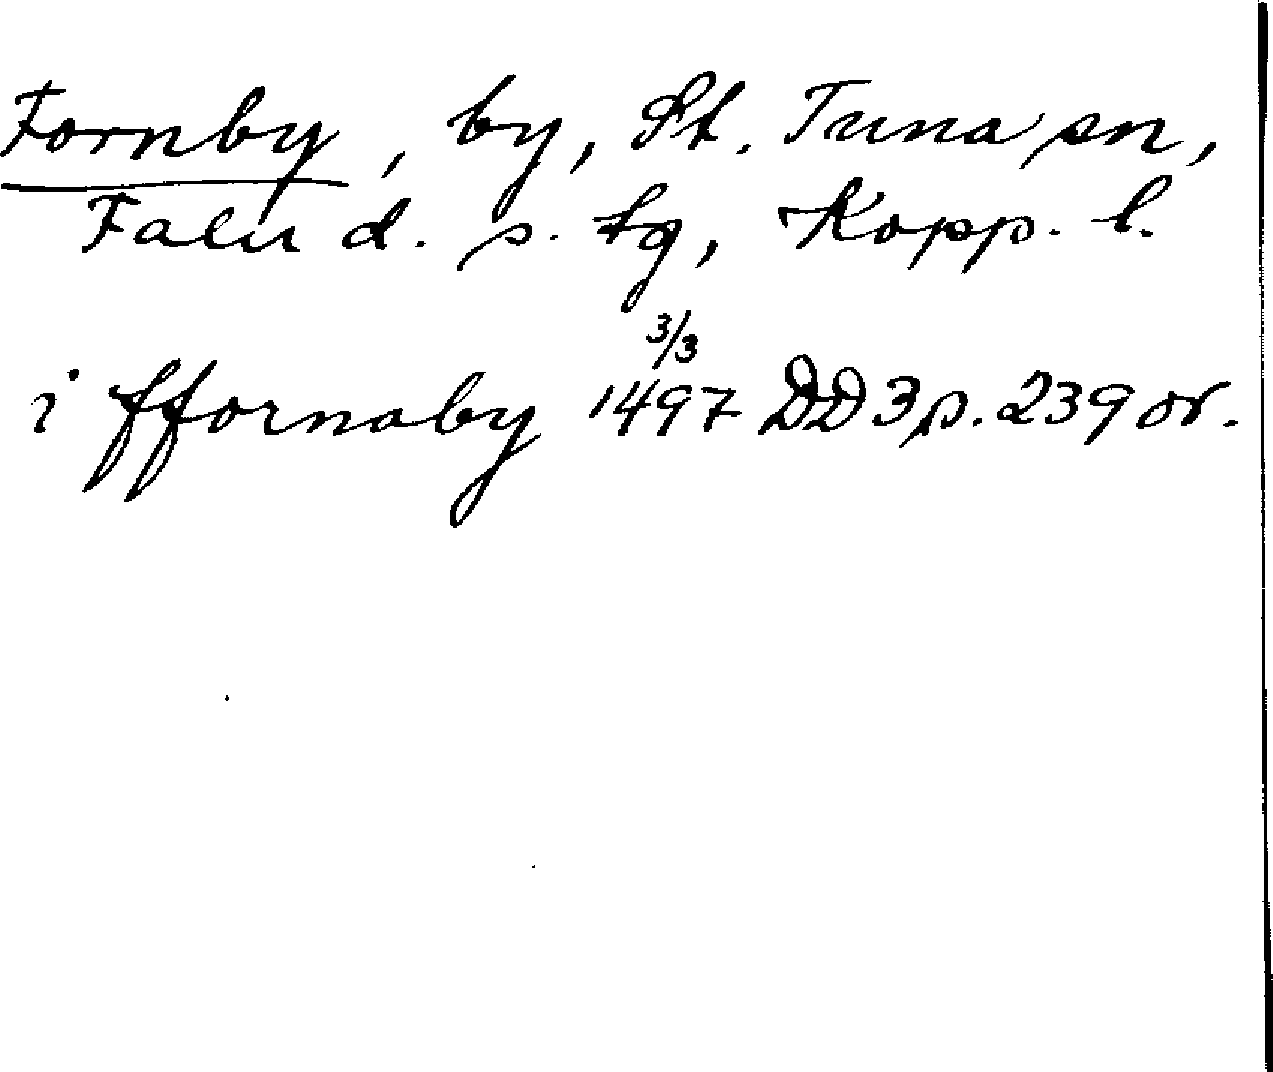 Fornby, by, St. Tuna sn,
Falu d. s. tg, Kopp. l.
3/3
i ffornaby 1497 DD 3 p. 239 or.